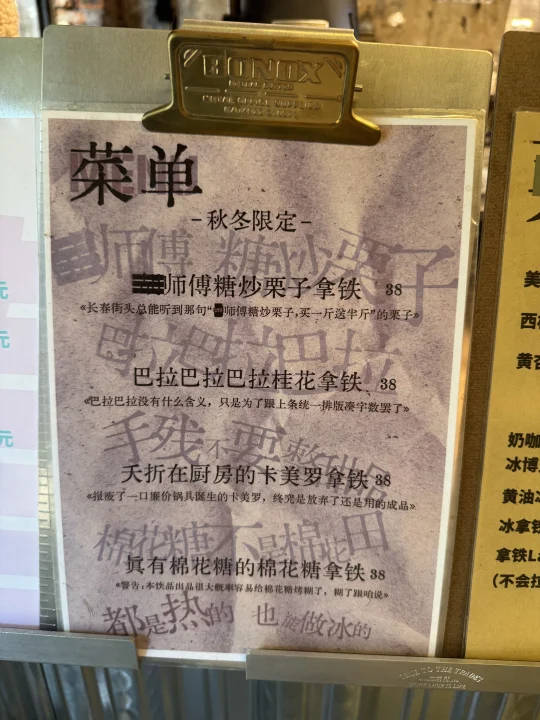 BONOX
菜单
-秋冬限定-
师傅 糖炒栗子
师傅糖炒栗子拿铁 38
《长春街头总能听到那句“师傅糖炒栗子,买一斤送半斤”的栗子》
巴拉巴拉巴拉
巴拉巴拉巴拉桂花拿铁 38
《巴拉巴拉没有什么含义，只是为了跟上条统一排版凑字数罢了》
手残不要
夭折在厨房的卡美罗拿铁 38
《报废了一口廉价锅具诞生的卡美罗，终究是放弃了还是用的成品》
棉花糖不是棉花田
真有棉花糖的棉花糖拿铁 38
《警告:本饮品出品很大概率容易给棉花糖烤糊了，糊了跟咱说》
都是热的 也能做冰的
元
元
元
美
西
黄
奶咖
冰博
黄油
冰拿铁
拿铁La
(不会拉
TRUE TO THE TRADE